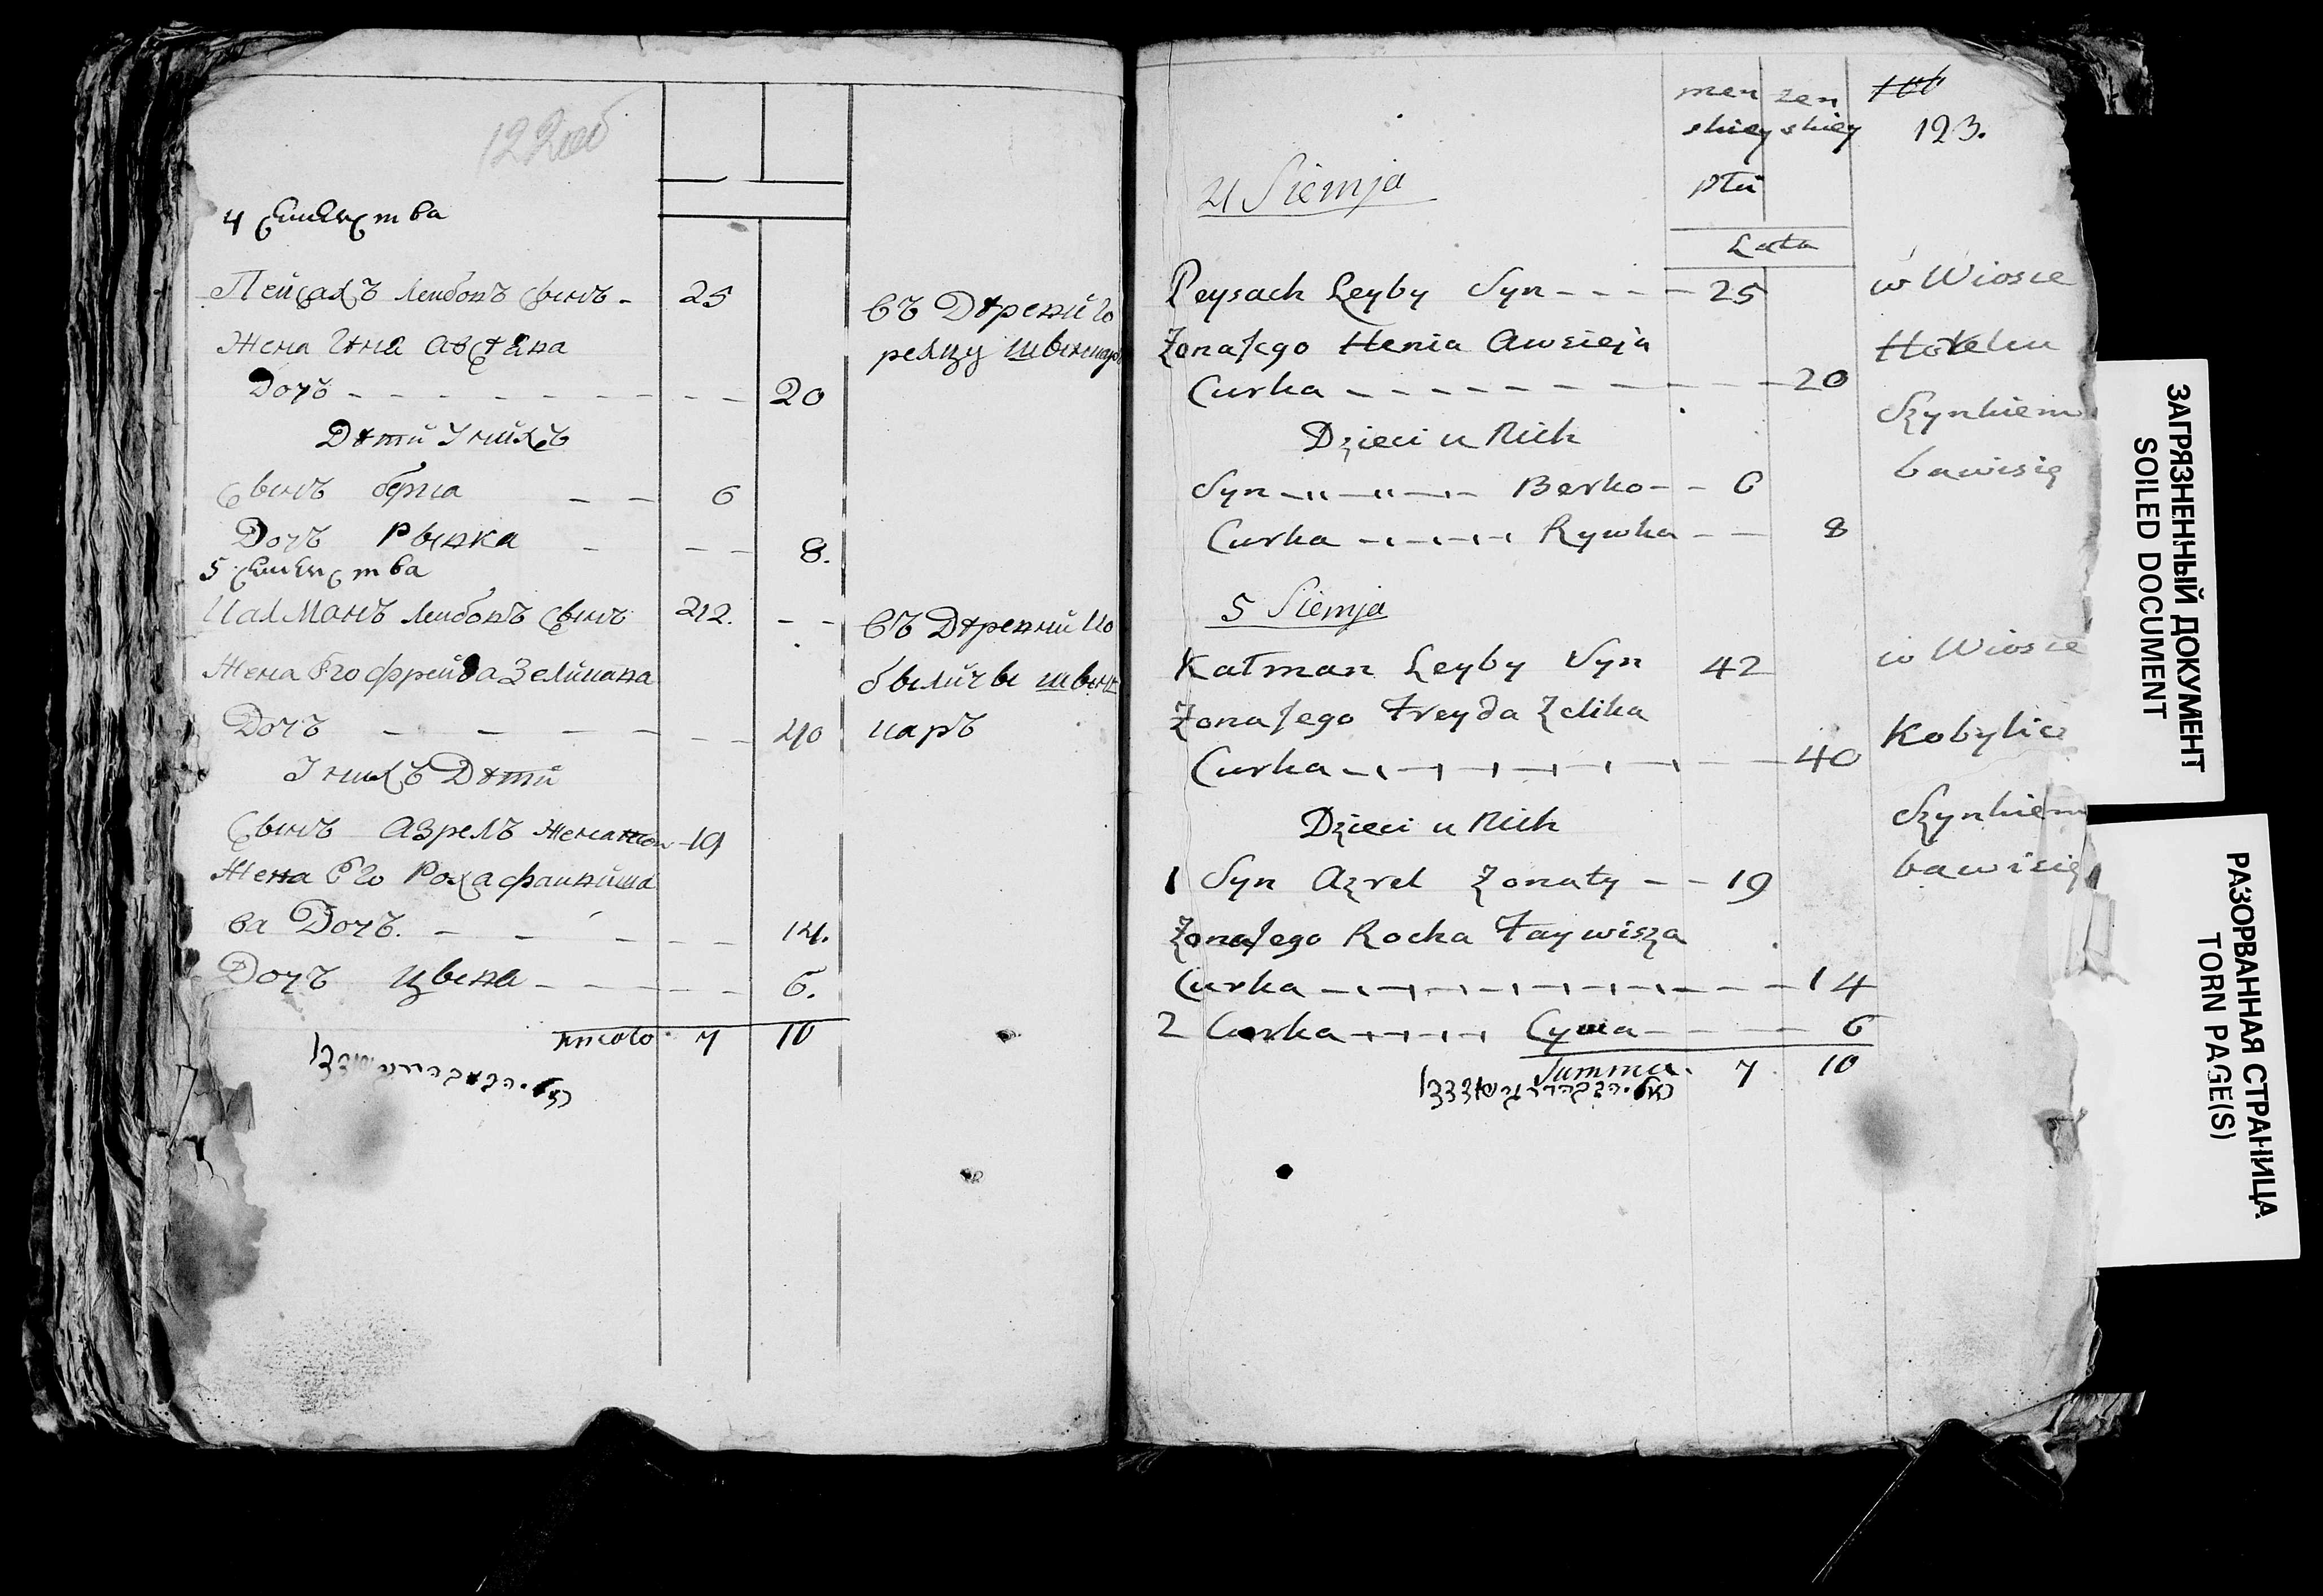 122об
4 семейства
Пейсахъ Лейбовъ сынъ - 25
въ Деревни Го
Жена Геня Авсеева
релцу шинкаръ
Дочь - - - - - - - - 20
Дети У нихъ
Сынъ берка - - 6
Дочь Рывка - - - 8.
5 семейства
Калманъ Лейбовъ сынъ 42. - -
въ Деревни Ко
Жена Его фрейда Зеликова
быличъ шинк
Дочъ - - - - - - - 40
каръ
У нихъ Дети
Сынъ Азрелъ женатой - 19
Жена Его Роха файвиша
ва Дочъ. - - - - - 14.
Дочъ Цывa - - - - - 6.
итого 7 10
men zen 100
skiey skiey 123.
płci
4 Siemja
Lata
Peysach Leyby Syn - - - - 25
w Wiosce
Żona Jego Henia Awsieja
Horelcu
Curka - - - - - - - - - 20
Szynkiem
Dzieci u Nich
bawi się
Syn - - - - - Berko - - 6
Curka - - - - Rywka - - 8
5 Siemja
Kałman Leyby Syn 42
w Wiosce
Żona Jego Freyda Zelika
Kobylicz
Curka - - - - - - - - - 40
Dzieci u Nich
Szynkiem
1 Syn Azrel Żonaty - - 19
bawi się
Żona Jego Rocha Faywisza
Curka - - - - - - - - - 14
2 Curka - - - - Cywa - - - - 6
Summa. 7 10
ЗАГРЯЗНЕННЫЙ ДОКУМЕНТ
SOILED DOCUMENT
РАЗОРВАННАЯ СТРАНИЦА
TORN PAGE(S)